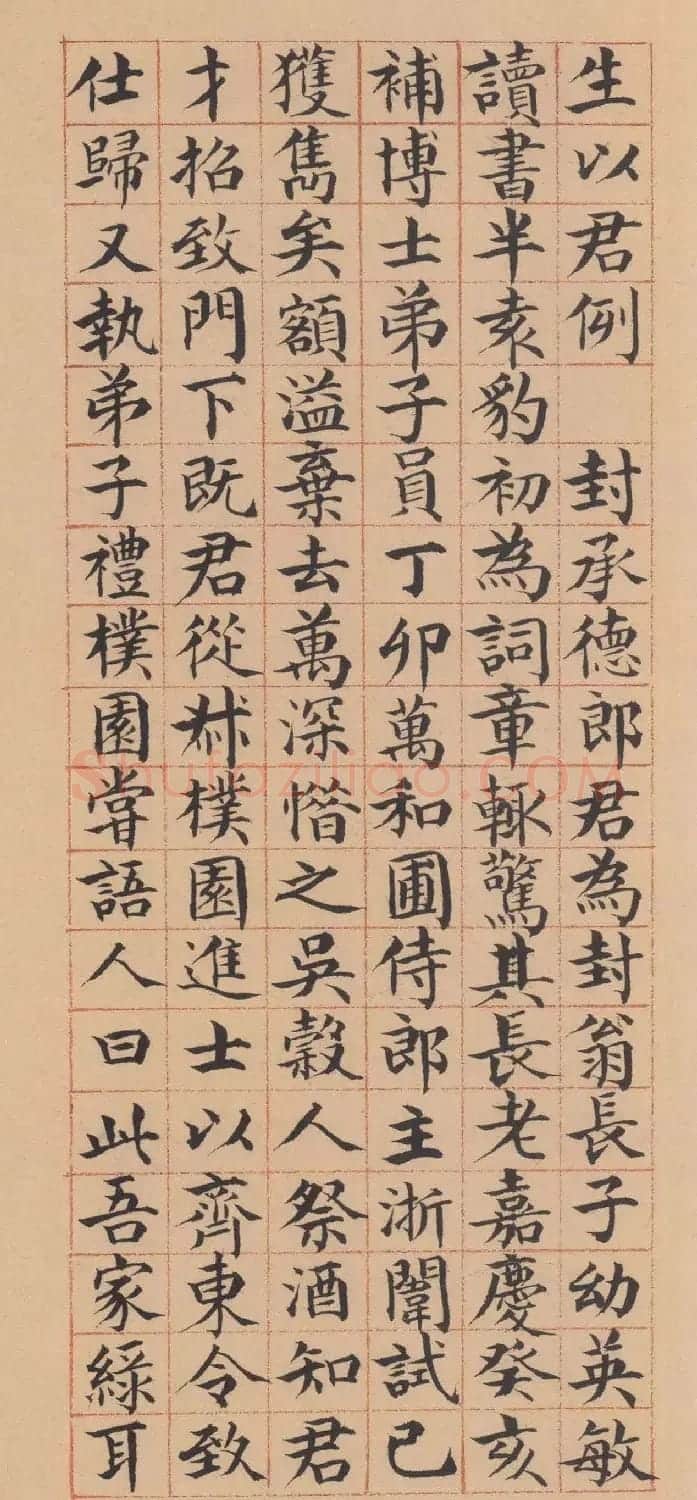 生以君例 封承德郎君為封翁長子幼英敏
讀書半袁豹初為詞章輙驚其長老嘉慶癸亥
補博士弟子員丁卯萬和圃侍郎主浙闈試已
獲雋矣額溢棄去萬深惜之吳榖人祭酒知君
才招致門下既君從叔樸園進士以齊東令致
仕歸又執弟子禮樸園嘗語人曰此吾家綠耳